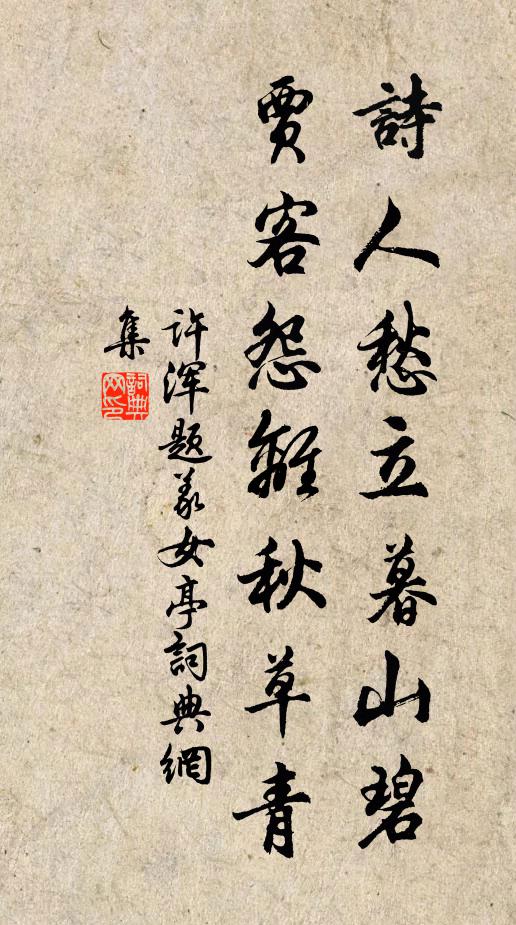 詩人愁立暮山碧
賈客怨離秋草青
許渾題義女亭詞典網
集
詞典網印